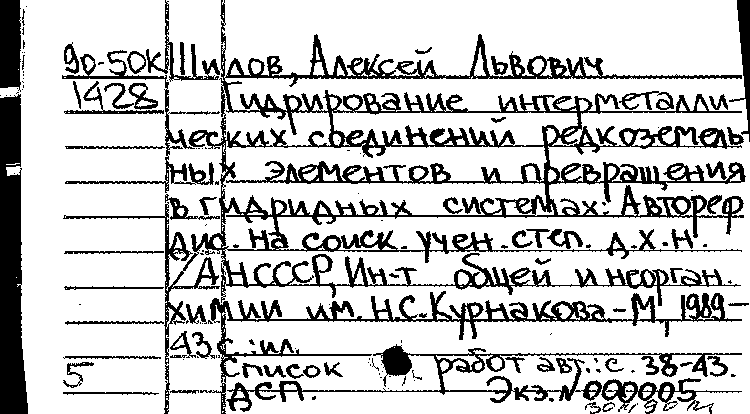 90-50К Шилов, Алексей Львович
1428 Гидрирование интерметалли-
ческих соединений редкоземель-
ных элементов и превращения
в гидридных системах: Автореф
дис. на соиск. учен. степ. д.х.н.
/АНСССР, Ин-т общей и неорган.
химии им. Н.С.Курнакова.-М., 1989-
43 с.:ил.
Список работ авт.: с. 38-43.
5 ДСП. Экз.N000005